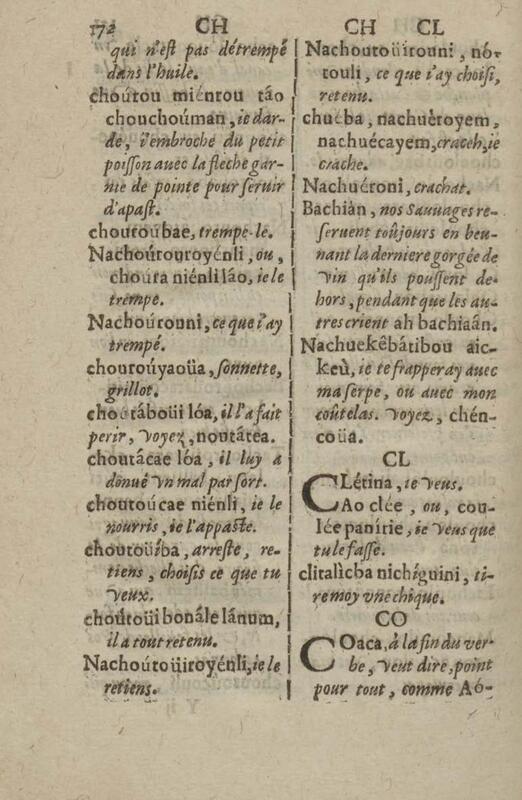 172 CH
qui n'est pas détrempé
dans l'huile.
choútou miéntou táo
chouchoúman, ie dar-
de, i'embroche du petit
poisson auec la fleche gar-
nie de pointe pour seruir
d'apast.
choutoúbae, trempe-le.
Nachoútouroyénli, ou,
choúta niénli láo, ie le
trempe.
Nachoútouni, ce que i'ay
trempé.
choutoúyaoüa, sonnette,
grillot.
choctáboüi lóa, il l'a fait
perir, voyez, noutátea.
choutâcae lóa, il luy a
donné vn mal par sort.
choutoúcae niénli, ie le
nourris, ie l'appaste.
choutoüíba, arreste, re-
tiens, choisis ce que tu
veux.
choútoüi bonále lánum,
il a tout retenu.
Nachoútoüiroyénli, ie le
retiens.
CH CL
Nachoutoüitouni, nó-
touli, ce que i'ay choisi,
retenu.
chuéba, nachuètoyem,
nachuécayem, craceh, ie
crache.
Nachuétoni, crachat.
Bachiàn, nos Sauuages re-
seruent toûjours en beu-
nant la derniere gorgée de
vin qu'ils poussent de-
hors, pendant que les au-
tres crient ah bachiaán.
Nachuekêbátibou aic-
keù, ie te frapperay auec
ma serpe, ou auec mon
coûtelas. voyez, chén-
coüa.
CL
CLétina, ie veus.
Ao clée, ou, cou-
lée panírie, ie veus que
tu le fasse.
clitalìcba nichíguini, ti-
re moy vne chique.
CO
COaca, à la fin du ver-
be, veut dire, point
pour tout, comme Aó-